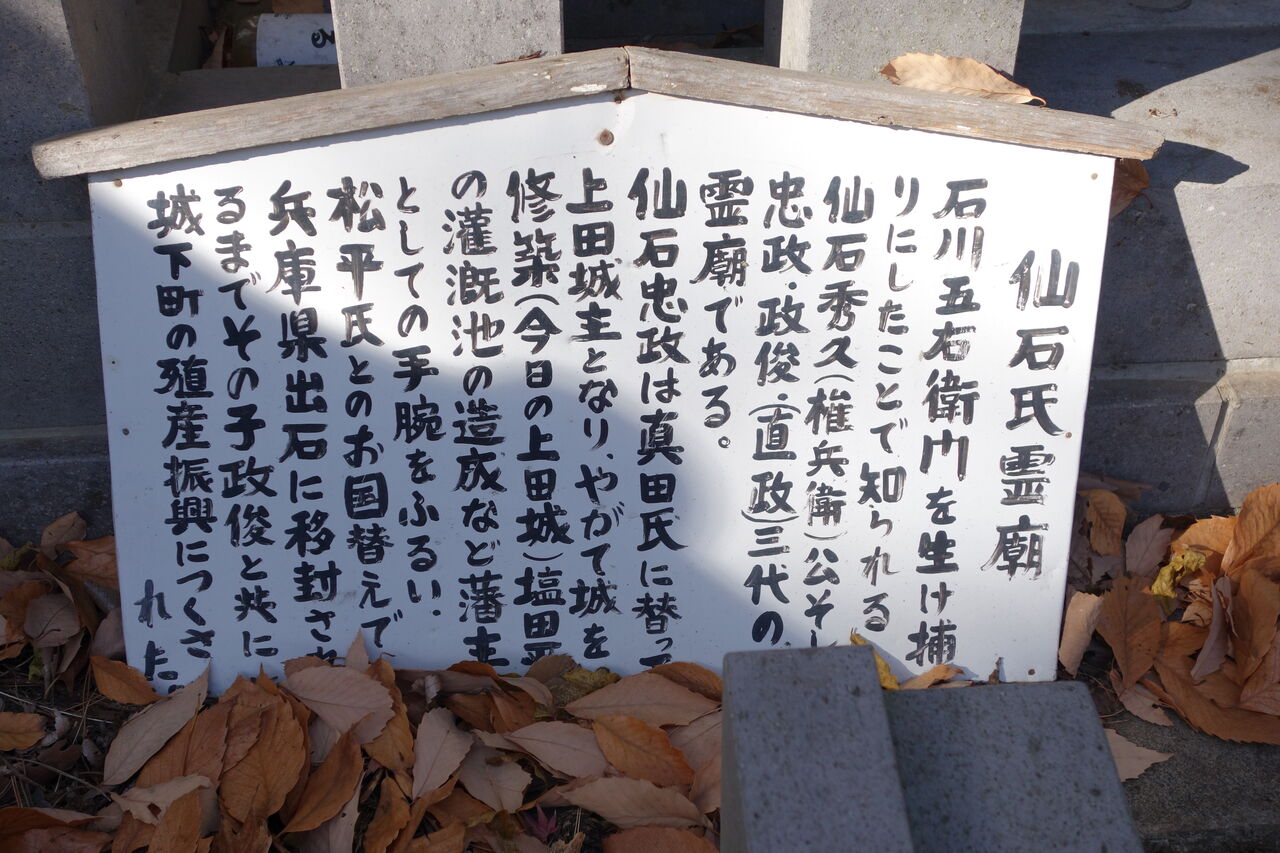 仙石氏霊廟
石川五右衛門を生け捕
りにしたことで知られる
仙石秀久(権兵衛)公そし
忠政・政俊・(直政)三代の
霊廟である。
仙石忠政は真田氏に替って
上田城主となり、やがて城を
修築(今日の上田城)塩田平
の灌漑池の造成など藩主
としての手腕をふるい、
松平氏とのお国替えで
兵庫県出石に移封され
るまでその子政俊と共に
城下町の殖産振興につくさ
れた